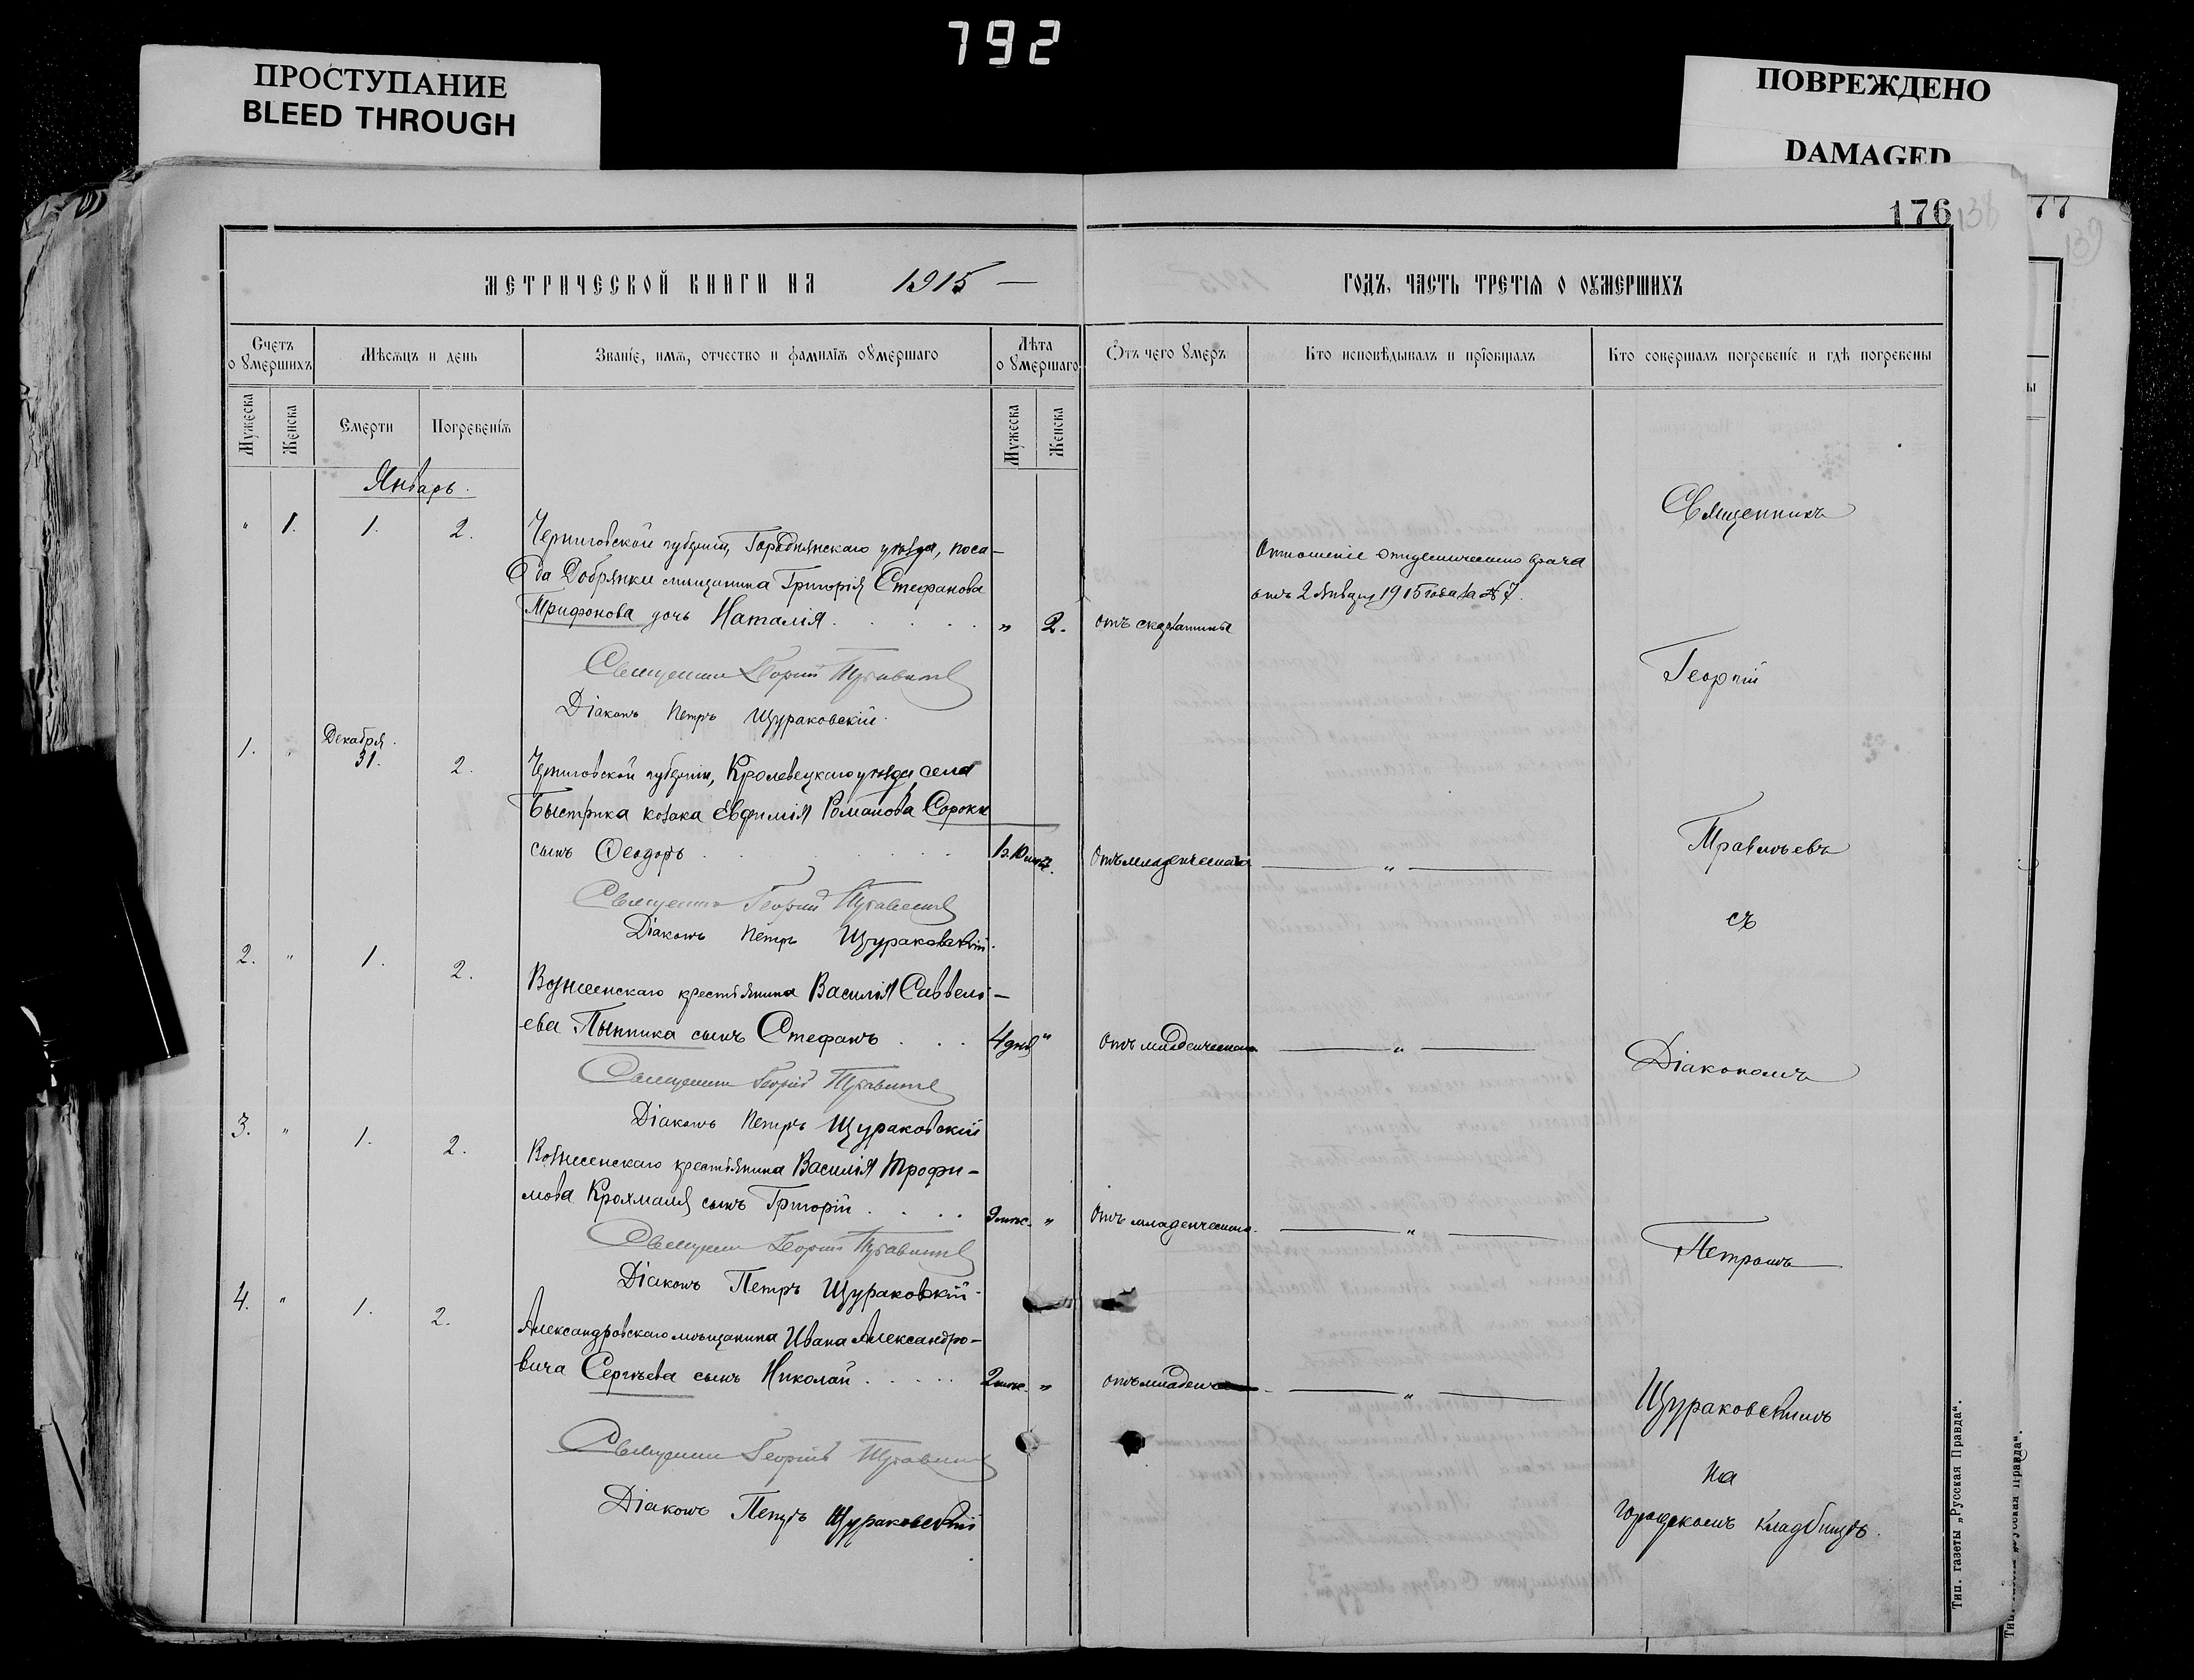 792
ПРОСТУПАНИЕ
BLEED THROUGH
ПОВРЕЖДЕНО
DAMAGED
176
138
77
139
МЕТРИЧЕСКОЙ КНИГИ НА 1915 —
ГОДЪ, ЧАСТЬ ТРЕТІѦ О ОУМЕРШИХЪ
Счетъ о умершихъ
Мѣсѧцъ и день
Званіе, имѧ, отчество и фамиліѧ оумершаго
Лѣта о умершаго
Ѿтъ чего умеръ
Кто исповѣдывалъ и пріобщалъ
Кто совершалъ погребеніе и гдѣ погребены
Мужеска
Женска
Смерти
Погребеніѧ
Мужеска
Женска
Январь.
" 1. 1. 2.
Черниговской губерніи, Городнянскаго уѣзда, поса-
да Добрянки мѣщанина Григорія Стефанова
Трифонова дочь Наталія . . . . . " 2. отъ скарлатины
Отношеніе эпидемическаго врача
отъ 2 Января 1915 года за № 7.
Священникъ Георгій
Діаконъ Петръ Щураковскій.
1. " Декабря 31. 2.
Черниговской губерніи, Кролевецкаго уѣзда села
Быстрика козака Евфимія Романова Сороки
сынъ Ѳеодоръ . . . 1 г. 10 мѣс. Отъ младенческой — " —
Священникъ Георгій
Діаконъ Петръ Щураковскій.
2. " 1. 2.
Вознесенскаго крестьянина Василія Саввель-
ева Пыптика сынъ Стефанъ . . . 4 дней " Отъ младенческой — " —
Священникъ Георгій
Діаконъ Петръ Щураковскій
3. " 1. 2.
Вознесенскаго крестьянина Василія Трофи-
мова Крохмаля сынъ Григорій . . . . 9 мѣс. " Отъ младенческой. — " —
Священникъ Георгій
Діаконъ Петръ Щураковскій.
4. " 1. 2.
Александровскаго мѣщанина Ивана Александро-
вича Сергѣева сынъ Николай . . . . . 2 мѣс. " отъ младенческой — " —
Священникъ Георгій
Діаконъ Петръ Щураковскій
Священникъ
Георгій
Травльевъ
съ
Діакономъ
Петромъ
Щураковскимъ
на
городскомъ кладбищѣ.
Тип. газеты „Русская Правда“.